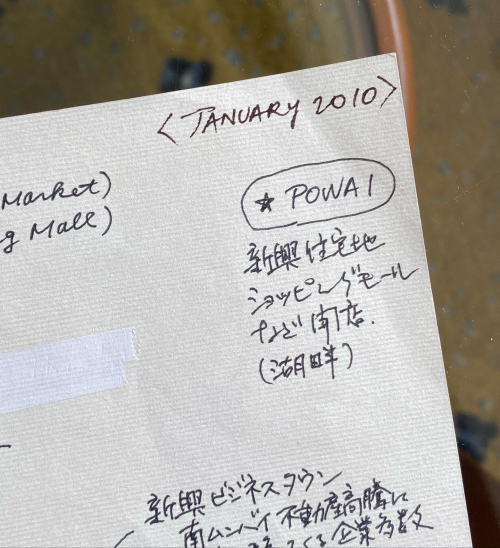 〈JANUARY 2010〉
Market)
g Mall)
★ POWAI
新興住宅地
ショッピングモール
など 開店.
(湖畔)
新興ビジネスタウン
南ムンバイ不動産高騰に
企業多数